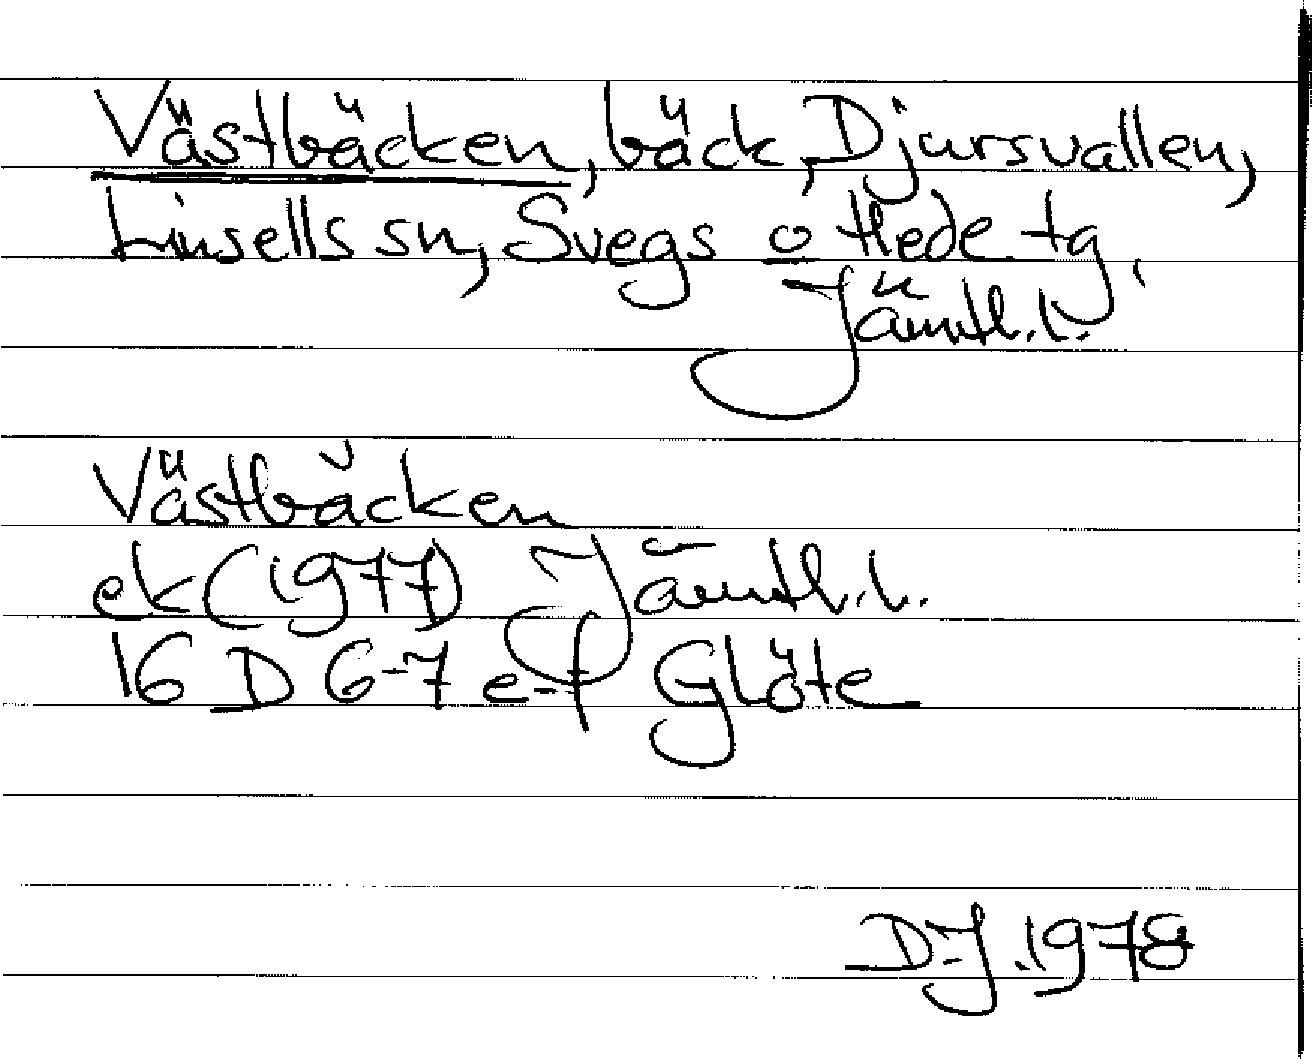 Västbäcken, bäck, Djursvallen,
Linsells sn, Svegs o Hede tg,
Jämtl.l.
Västbäcken
ek (1977) Jämtl.l.
16 D 6-7 e-f Glöte
DJ.1978